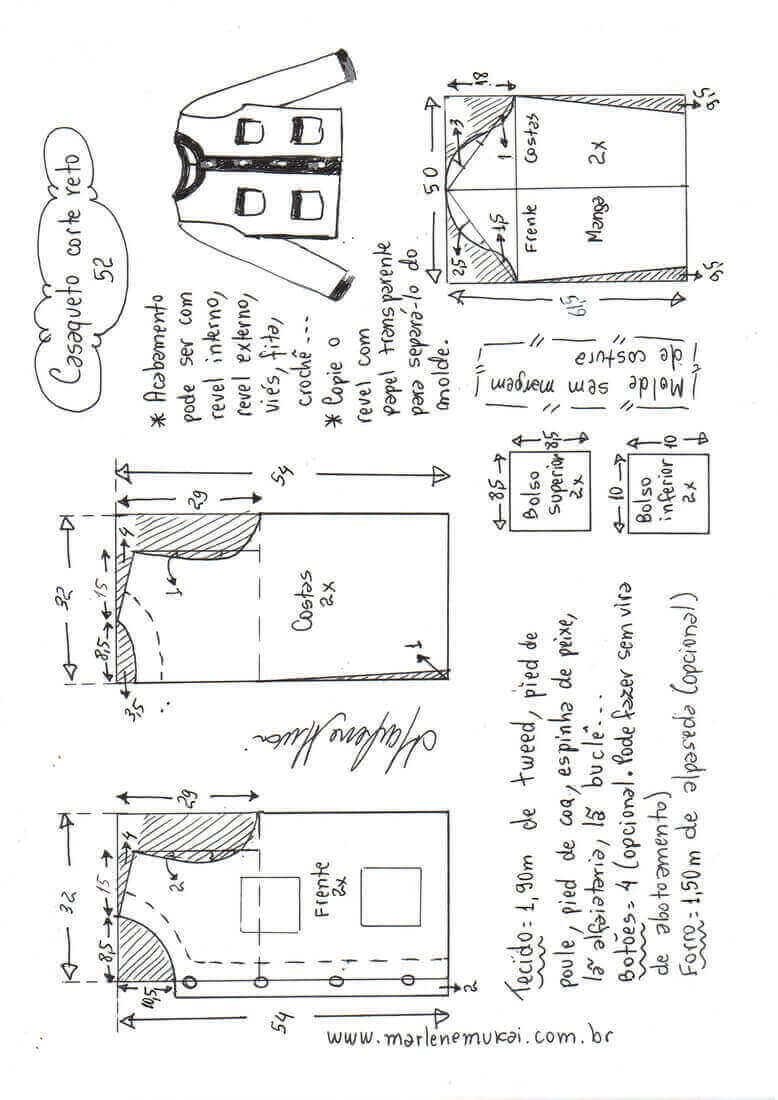 Casaqueto corte reto
52
* Acabamento
pode ser com
revel interno,
revel externo,
viés, fita,
crochê---
* Copie o
revel com
papel transparente
para separá-lo do
molde.
50
18
3
1
2,5
1,5
Costas
Frente
2x
Manga
61,5
5,5
5,5
Molde sem margem
de costura
32
8,5
15
4
29
54
3,5
1
Costas
2x
1
8,5
8,5
Bolso
superior
2x
10
10
Bolso
inferior
2x
32
8,5
15
4
29
54
10,5
2
Frente
2x
2
Tecido = 1,90m de tweed, pied de
poule, pied de coq, espinha de peixe,
lã alfaiataria, lã buclê...
Botões = 4 (opcional. Pode fazer sem vira
de abotoamento)
Forro = 1,50m de alpaseda (opcional)
Marlene Mukai
www.marlenemukai.com.br